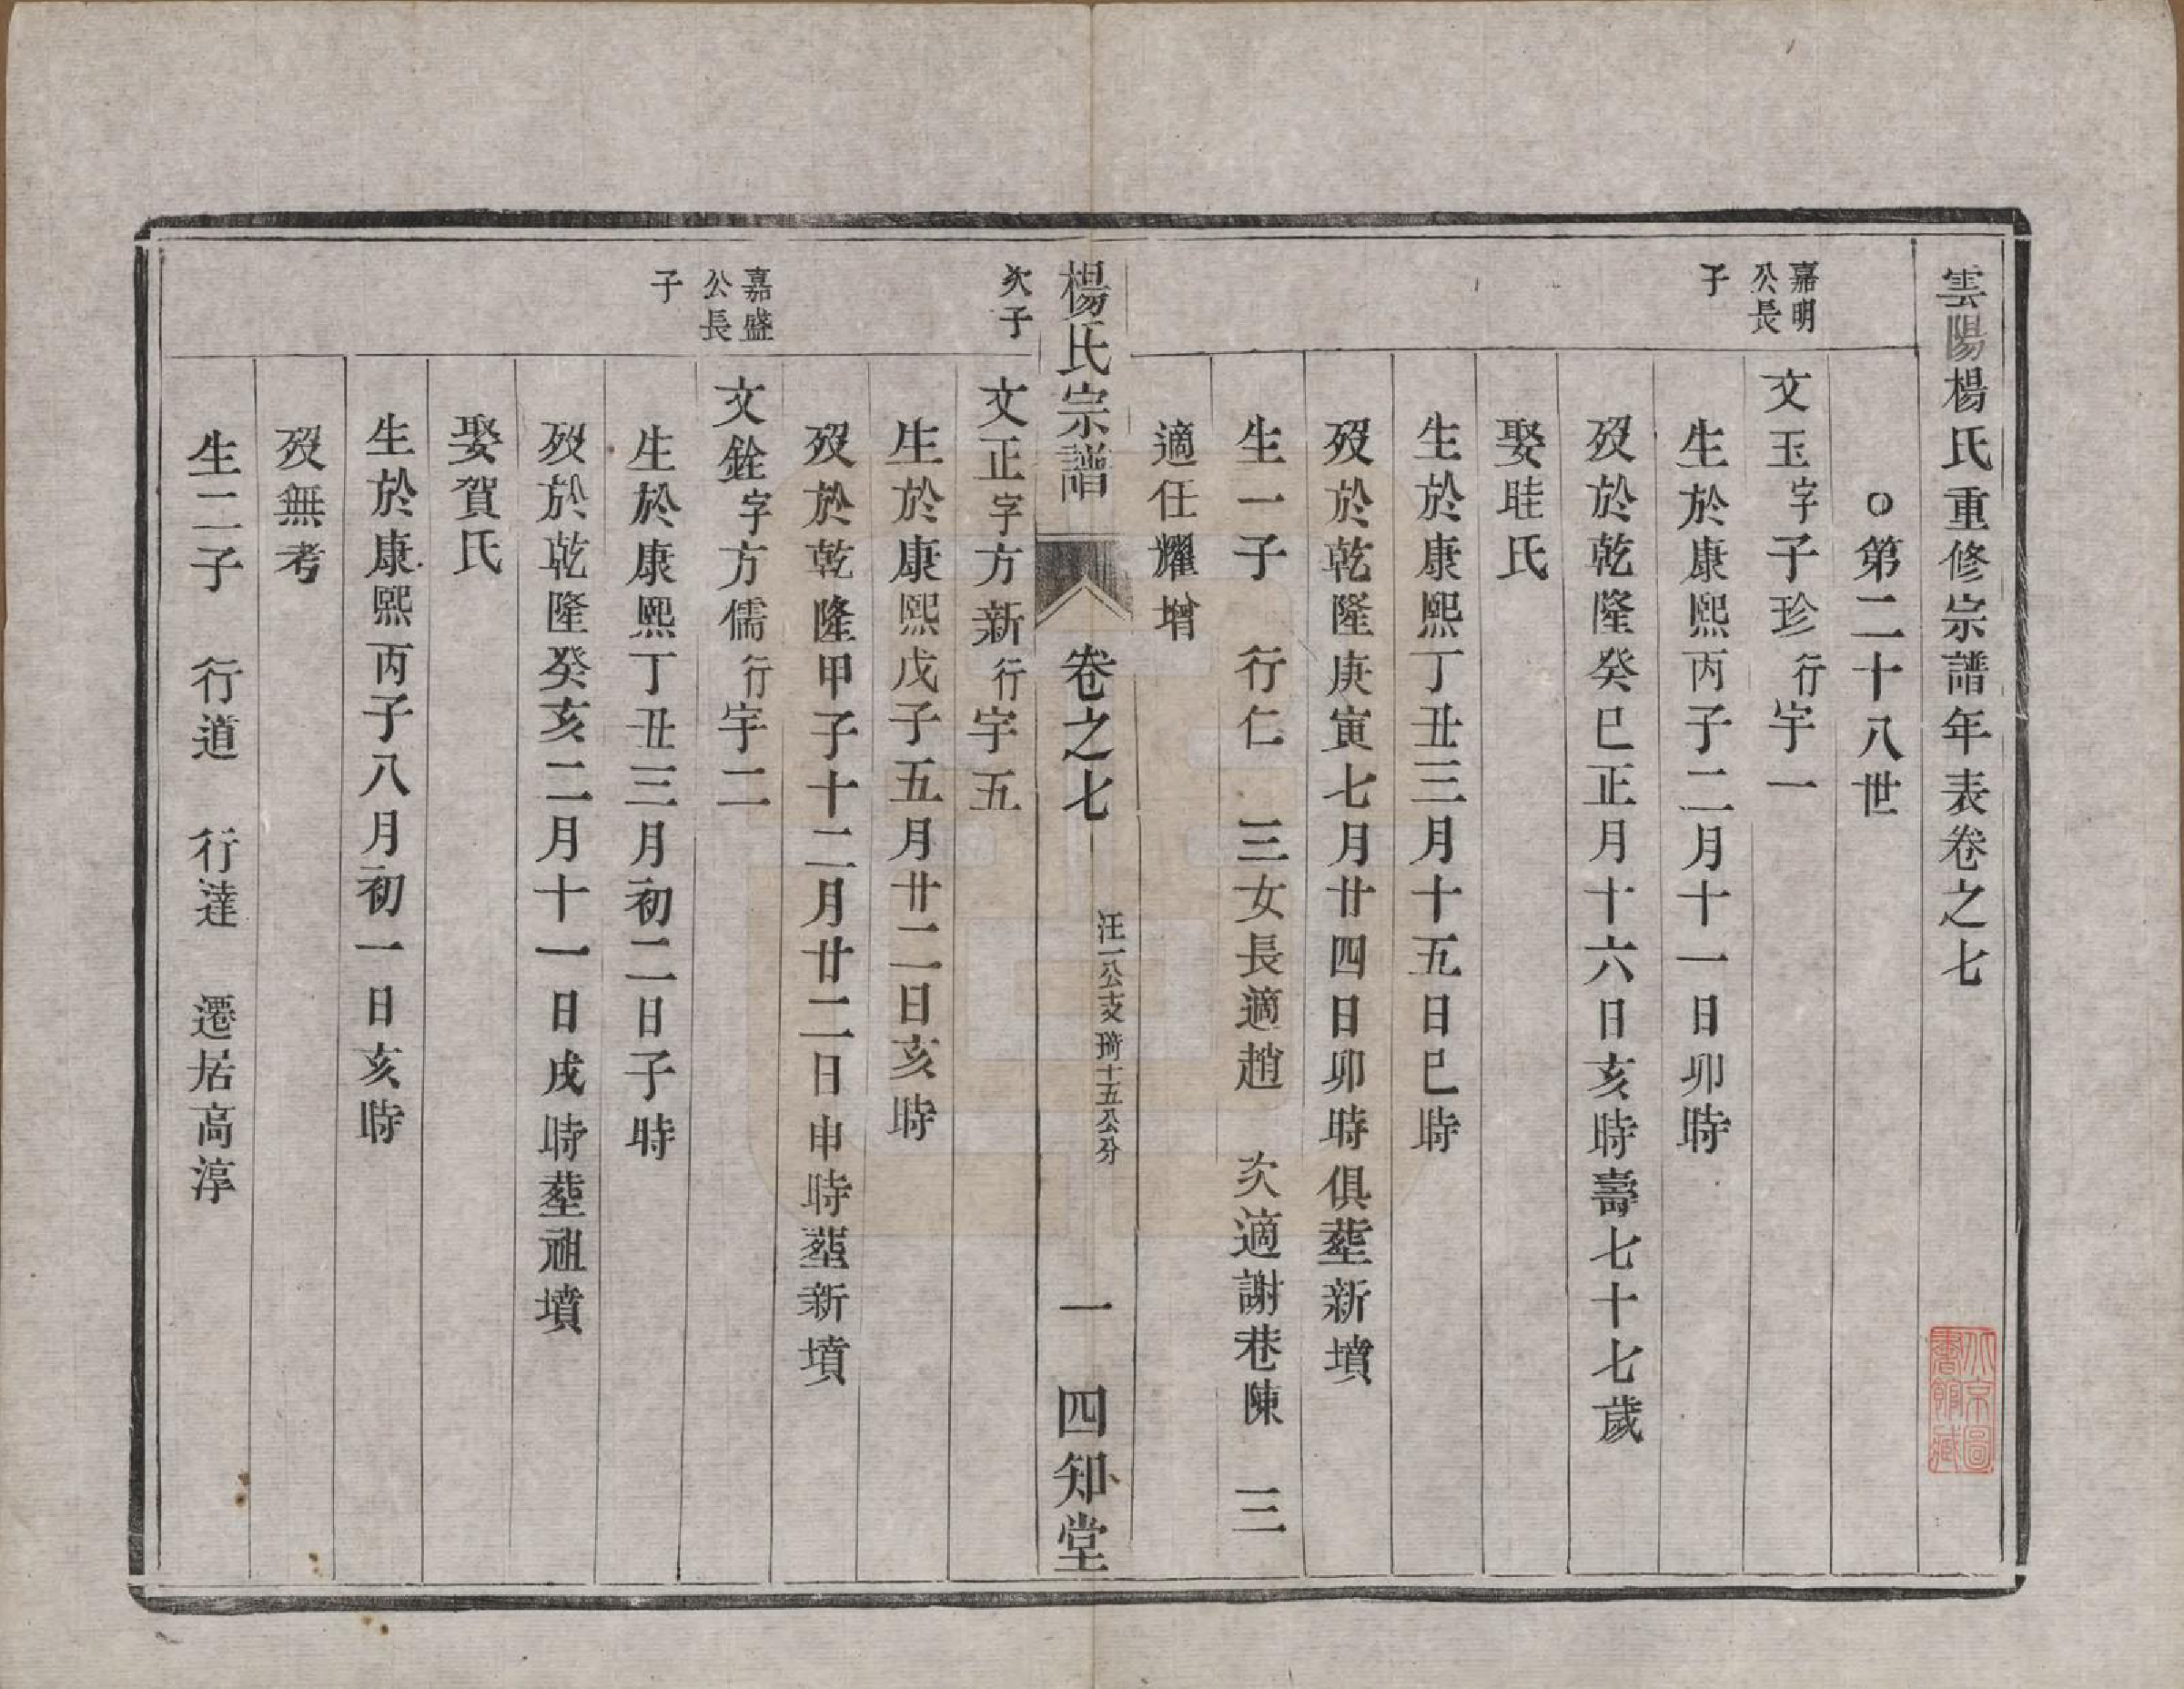 雲陽楊氏重修宗譜年表卷之七
○第二十八世
嘉明公長子
文玉字子珍行宇一
生於康熙丙子二月十一日卯時
歿於乾隆癸巳正月十六日亥時壽七十七歲
娶眭氏
生於康熙丁丑三月十五日巳時
歿於乾隆庚寅七月廿四日卯時俱塟新墳
生一子 行仁 三女長適趙 次適謝巷陳 三
適任耀增
楊氏宗譜 卷之七 汪一公支琦十五公分 一 四知堂
次子
文正字方新行宇五
生於康熙戊子五月廿二日亥時
歿於乾隆甲子十二月廿二日申時塟新墳
嘉盛公長子
文銓字方儒行宇二
生於康熙丁丑三月初二日子時
歿於乾隆癸亥二月十一日戌時塟祖墳
娶賀氏
生於康熙丙子八月初一日亥時
歿無考
生二子 行道 行達 遷居高淳
北京圖書館藏